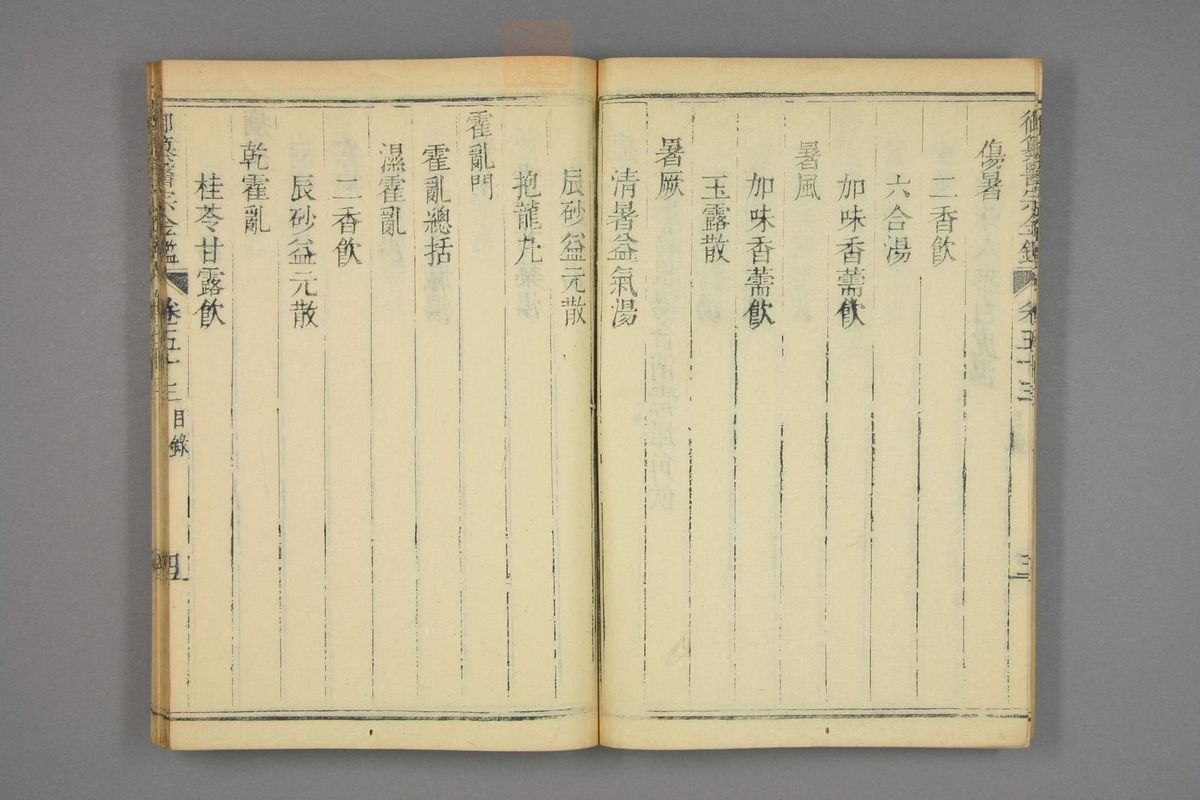 御纂醫宗金鑑 卷五十三 三
傷暑
二香飲
六合湯
加味香薷飲
暑風
加味香薷飲
玉露散
暑厥
清暑益氣湯
辰砂益元散
抱龍丸
霍亂門
霍亂總括
濕霍亂
二香飲
辰砂益元散
乾霍亂
桂苓甘露飲
御纂醫宗金鑑 卷五十三 目錄 四